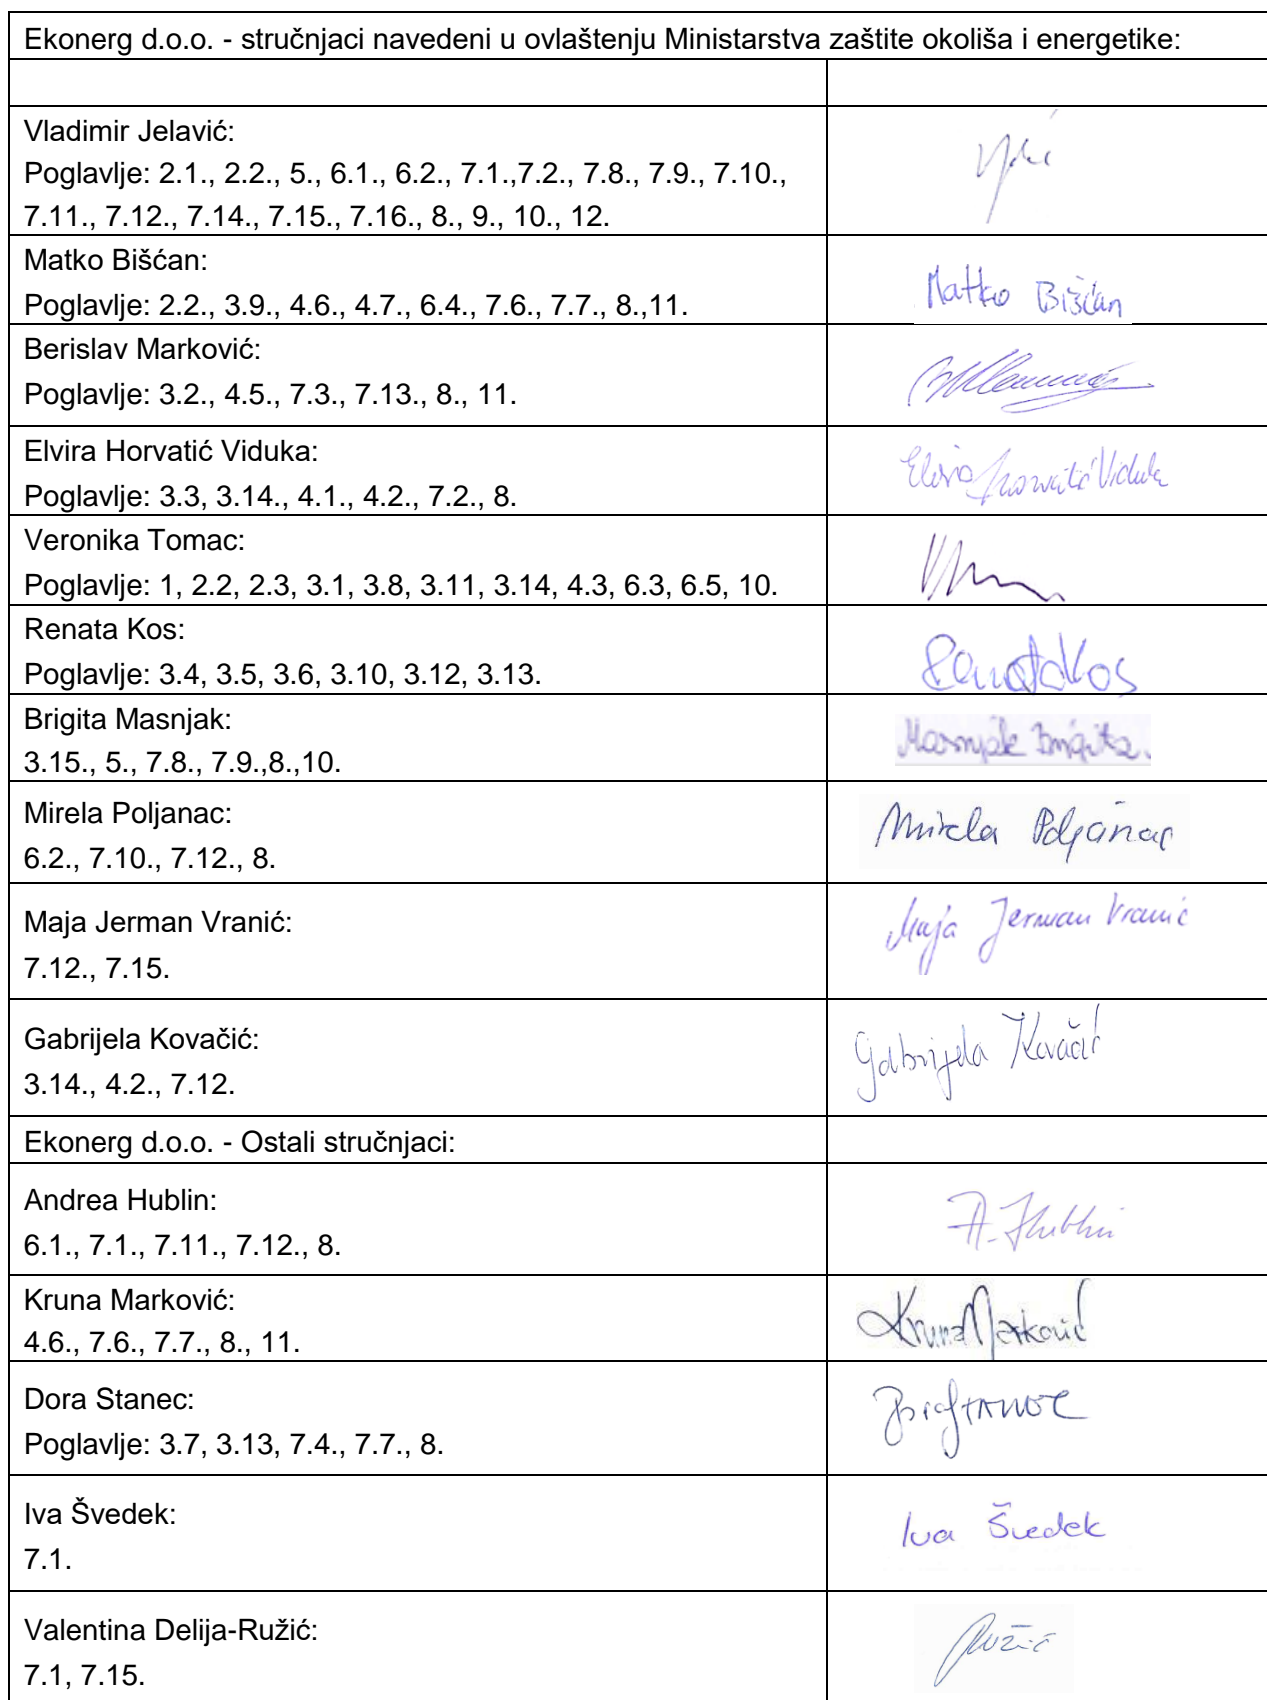 Ekonerg d.o.o. - stručnjaci navedeni u ovlaštenju Ministarstva zaštite okoliša i energetike:
Vladimir Jelavić:
Poglavlje: 2.1., 2.2., 5., 6.1., 6.2., 7.1.,7.2., 7.8., 7.9., 7.10.,
7.11., 7.12., 7.14., 7.15., 7.16., 8., 9., 10., 12.
Matko Bišćan:
Poglavlje: 2.2., 3.9., 4.6., 4.7., 6.4., 7.6., 7.7., 8.,11.
Matko Bišćan
Berislav Marković:
Poglavlje: 3.2., 4.5., 7.3., 7.13., 8., 11.
Elvira Horvatić Viduka:
Poglavlje: 3.3, 3.14., 4.1., 4.2., 7.2., 8.
Elvira Horvatić Viduka
Veronika Tomac:
Poglavlje: 1, 2.2, 2.3, 3.1, 3.8, 3.11, 3.14, 4.3, 6.3, 6.5, 10.
Renata Kos:
Poglavlje: 3.4, 3.5, 3.6, 3.10, 3.12, 3.13.
Renata Kos
Brigita Masnjak:
3.15., 5., 7.8., 7.9.,8.,10.
Masnjak Brigita.
Mirela Poljanac:
6.2., 7.10., 7.12., 8.
Mirela Poljanac
Maja Jerman Vranić:
7.12., 7.15.
Maja Jerman Vranić
Gabrijela Kovačić:
3.14., 4.2., 7.12.
Gabrijela Kovačić
Ekonerg d.o.o. - Ostali stručnjaci:
Andrea Hublin:
6.1., 7.1., 7.11., 7.12., 8.
A. Hublin
Kruna Marković:
4.6., 7.6., 7.7., 8., 11.
Kruna Marković
Dora Stanec:
Poglavlje: 3.7, 3.13, 7.4., 7.7., 8.
Iva Švedek:
7.1.
Iva Švedek
Valentina Delija-Ružić:
7.1, 7.15.
Ružić